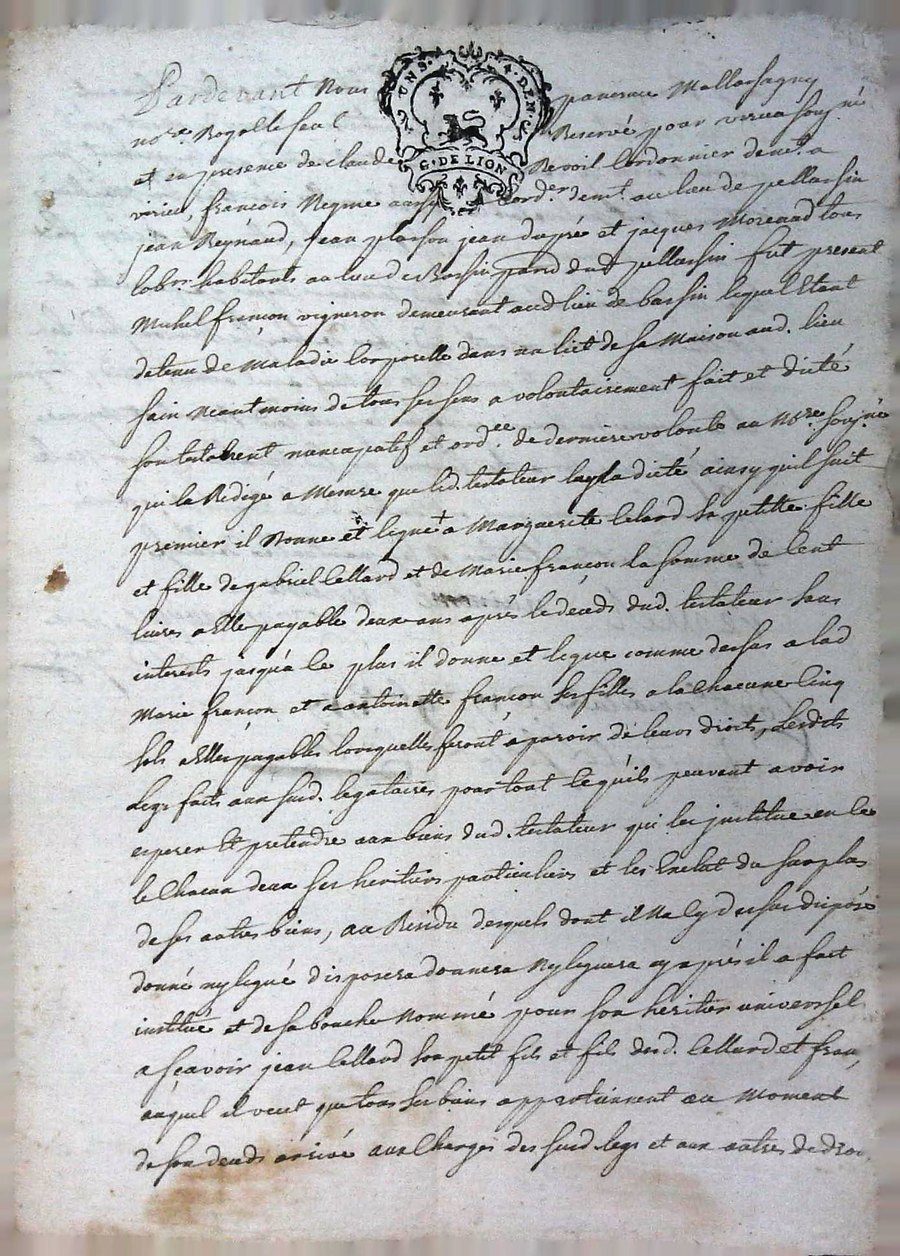 UNS. 4. DEN.
G. DE LION
Pardevant Nous pancrace Mallassagny
no.re Royalle seul Reservé pour virieu soug.né
et en presence de claude Revoil Cordonnier dem.t a
virieu, françois Reyme aussy Cord.er dem.t au lieu de pellussin
jean Reynaud, jean plasson jean dupré et jacques Morenad tous
lab.rs habitants au lieu de Bassin par.se dud pellussin fut present
Michel françon vigneron demeurant aud lieu de bassin lequel Etant
detenu de Maladie Corporelle dans un lict de sa Maison aud. lieu
sain Neantmoins de tous ses sens a volontairement fait et dicté
son testament nuncupatif et ord.ce de derniere volonté au No.re soug.né
qui la Redigé a Mesure que led. testateur luy la dicté ainsy quil suit
premier il Donne et legue a Marguerite Cellard sa petitte fille
et fille de gabriel Cellard et de Marie françon la somme de Cent
livres a Elle payable deux ans après le deceds dud. testateur sans
interests jusqu'a ce plus il donne et legue comme dessus a lad
Marie françon et a antoinette françon ses filles a la Chacune Cinq
sols a Elles payables lorsquelles feront aparoir de leurs droits, Lesdits
Legs faits aux sud. legataires pour tout ce quils peuvent avoir
esperer Et pretendre aux biens dud. testateur qui les justitue en ce
le Chacun deux ses heritiers particuliers et les Exclut du surplus
de ses autres biens, au Residu desquels dont il Na Cy dessus disposé
donné ny legué disposera donnera Ny leguera cy après il a fait
institué et de sa bouche Nommé pour son héritier universsel
a sçavoir jean Cellard son petit fils et fils desd. Cellard et fran,
auquel il veut que tous ses biens appartiennent au Moment
de son deceds arrivé aux Charges des susd. legs et aux autres de droi.